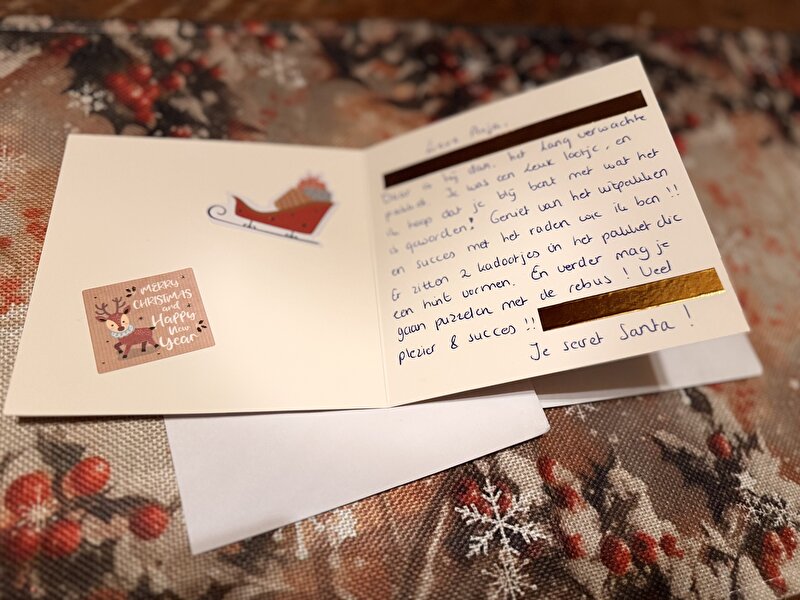 MERRY
CHRISTMAS
and
Happy
New
Year
Lieve
Daar is hij dan, het lang verwachte
pakket. Je was een leuk lootje, en
ik hoop dat je blij bent met wat het
is geworden! Geniet van het uitpakken
en succes met het raden wie ik ben !!
Er zitten 2 kadootjes in het pakket die
een hint vormen. En verder mag je
gaan puzzelen met de rebus ! Veel
plezier & succes !!
Je secret Santa !